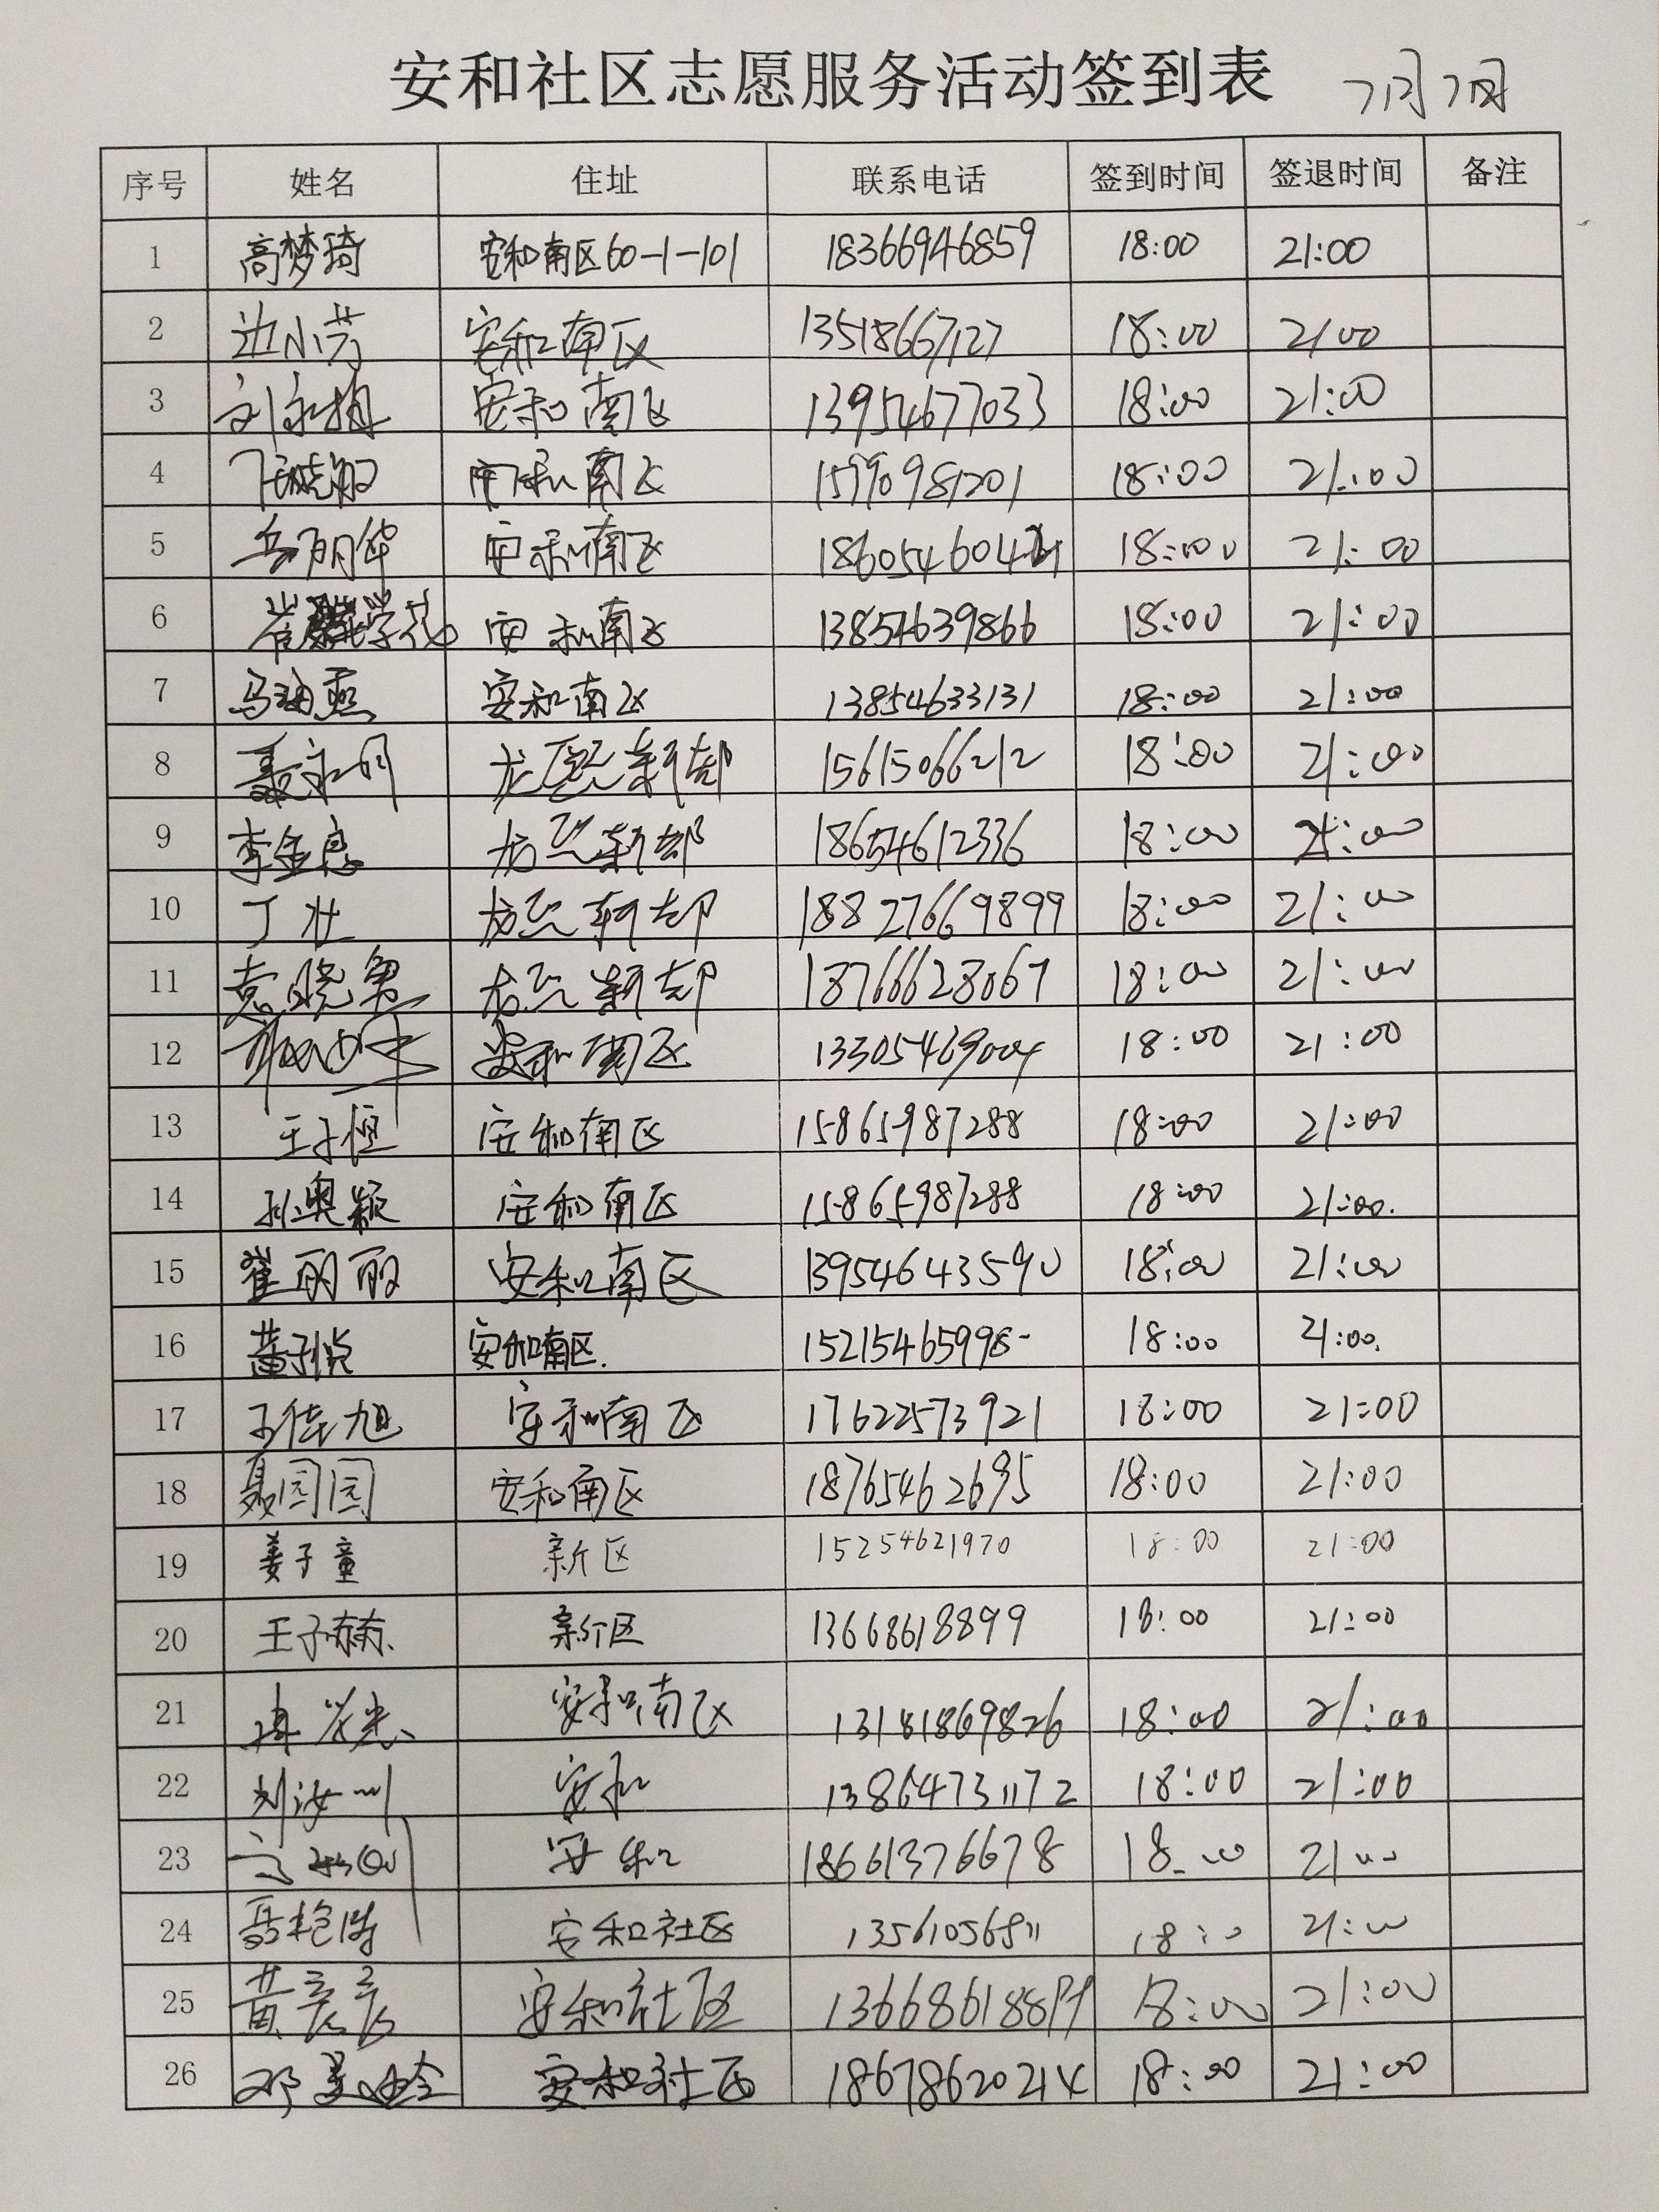 安和社区志愿服务活动签到表 7月7日
序号 姓名 住址 联系电话 签到时间 签退时间 备注
1 高梦琦 安和南区60-1-101 18366946859 18:00 21:00
2 边小芳 安和南区 13518667127 18:00 21 00
3 安和南区 13954677033 18:00 21:00
4 安和南区 18:00 21:00
5 岳丽华 安和南区 18:00 21:00
6 安和南区 13854639866 18:00 21:00
7 安和南区 13854633131 18:00 21:00
8 聂永同 龙熙新都 15615066212 18:00 21:00
9 李金良 龙熙新都 18654612336 18:00 21:00
10 丁壮 龙熙新都 18827669899 18:00 21:00
11 袁晓勇 龙熙新都 18766628067 18:00 21:00
12 安和南区 13305469004 18:00 21:00
13 王子恒 安和南区 15865987288 18:00 21:00
14 孙奥颖 安和南区 15865987288 18:00 21:00.
15 崔丽丽 安和南区 13954643590 18:00 21:00
16 黄子悦 安和南区. 15215465998- 18:00 21:00.
17 王佳旭 安和南区 17622573921 18:00 21:00
18 聂园园 安和南区 18765462695 18:00 21:00
19 姜子童 新区 15254621970 18:00 21:00
20 王子赫 新区 13668618899 18:00 21:00
21 安和南区 13181869826 18:00 21:00
22 刘汝川 安和 13864731172 18:00 21:00
23 安和 18661376678 18 00 21 00
24 安和社区 13561056811 18:00 21:00
25 黄亮亮 安和社区 18:00 21:00
26 邓美玲 安和社区 18678620214 18:00 21:00